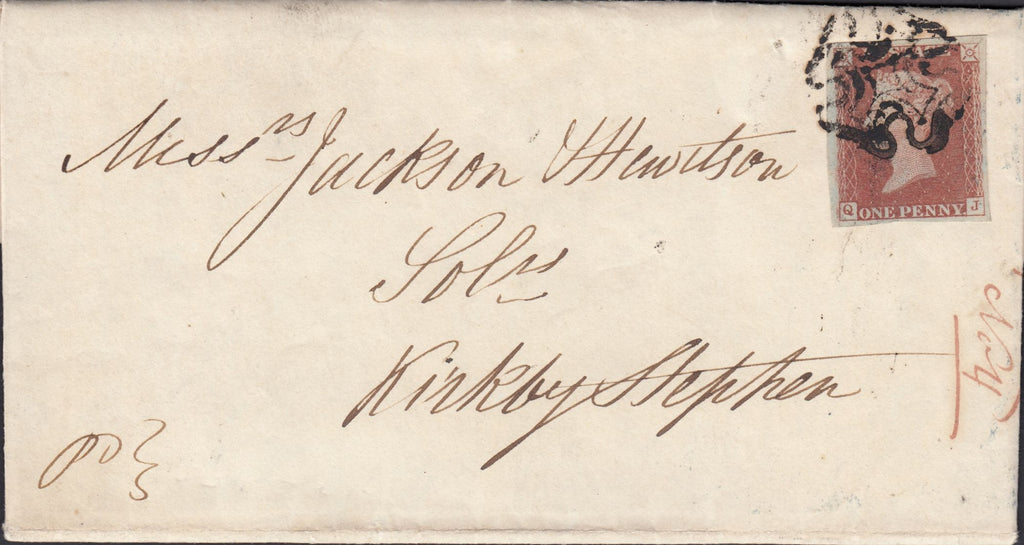 Messrs Jackson & Hewitson
Solrs
Kirkby Stephen
Pd
Q ONE PENNY J